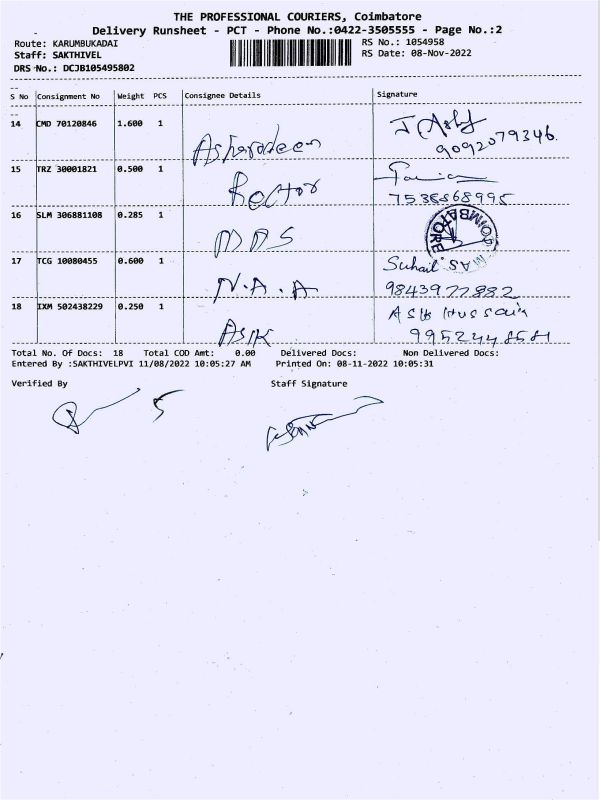 THE PROFESSIONAL COURIERS, Coimbatore
Delivery Runsheet - PCT - Phone No.:0422-3505555 - Page No.:2
Route: KARUMBUKADAI
RS No.: 1054958
Staff: SAKTHIVEL
RS Date: 08-Nov-2022
DRS No.: DCJB105495802
S No Consignment No Weight PCS Consignee Details Signature
14 CMD 70120846 1.600 1
9092079346.
15 TRZ 30001821 0.500 1 Rector
7538868995
16 SLM 306881108 0.285 1 MAS
COIMBATORE
M.A.S
17 TCG 10080455 0.600 1 N.A.A Suhail
9843977882
18 IXM 502438229 0.250 1 Asik Asik Hussain
9952448581
Total No. Of Docs: 18 Total COD Amt: 0.00 Delivered Docs: Non Delivered Docs:
Entered By :SAKTHIVELPVI 11/08/2022 10:05:27 AM Printed On: 08-11-2022 10:05:31
Verified By Staff Signature